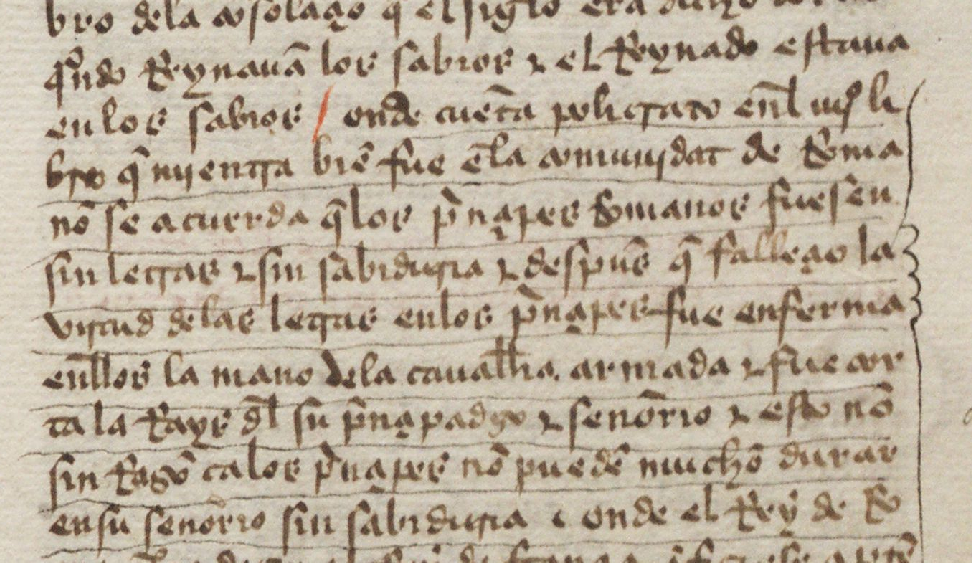 bro dela consolaçio q̃ el siglo era
qñdo Reynauã los sabios ⁊ el Reynado estaua
en los sabios / onde cuẽta policrato enl iiijº li
bro q̃ mientra biẽ fue ẽ la comunidat de Roma
nõ se acuerda q̃ los p̃nçipes Romanos fuesen
sin letras ⁊ sin sabiduria ⁊ despũs q̃ falleçio la
virtud delas letras enlos p̃nçipes fue enferma
enllos la mano dela cauallia armada ⁊ fue cor
ta la Rays dl̃ su p̃nçipadgo ⁊ señorio ⁊ esto nõ
sin Razõ ca los p̃nçipes nõ puedẽ mucho durar
en su señorio sin sabiduria onde el Rey de Ro